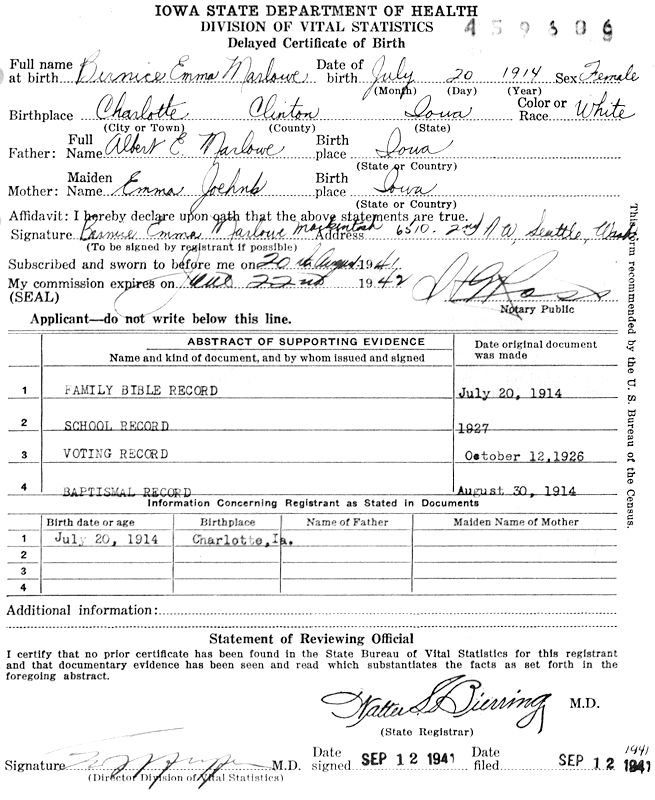 IOWA STATE DEPARTMENT OF HEALTH
DIVISION OF VITAL STATISTICS 459606
Delayed Certificate of Birth
Full name at birth Bernice Emma Marlowe Date of birth July 20 1914 Sex Female
(Month) (Day) (Year)
Birthplace Charlotte Clinton Iowa Color or Race White
(City or Town) (County) (State)
Father: Full Name Albert E. Marlowe Birth place Iowa
(State or Country)
Mother: Maiden Name Emma Joehnk Birth place Iowa
(State or Country)
Affidavit: I hereby declare upon oath that the above statements are true.
Signature Bernice Emma Marlowe Mackintosh Address 6510 - 2nd N W, Seattle, Wash
(To be signed by registrant if possible)
Subscribed and sworn to before me on 20th August 1941
My commission expires on June 22nd 1942
(SEAL) Notary Public
Applicant—do not write below this line.
This form recommended by the U. S. Bureau of the Census.
ABSTRACT OF SUPPORTING EVIDENCE
Name and kind of document, and by whom issued and signed Date original document was made
1 FAMILY BIBLE RECORD July 20, 1914
2 SCHOOL RECORD 1927
3 VOTING RECORD October 12,1926
4 BAPTISMAL RECORD August 30, 1914
Information Concerning Registrant as Stated in Documents
Birth date or age Birthplace Name of Father Maiden Name of Mother
1 July 20, 1914 Charlotte,Ia.
2
3
4
Additional information:
Statement of Reviewing Official
I certify that no prior certificate has been found in the State Bureau of Vital Statistics for this registrant
and that documentary evidence has been seen and read which substantiates the facts as set forth in the
foregoing abstract.
Walter L. Bierring M.D.
(State Registrar)
Signature M.D. Date signed SEP 12 1941 Date filed SEP 12 1941 1941
(Director Division of Vital Statistics)